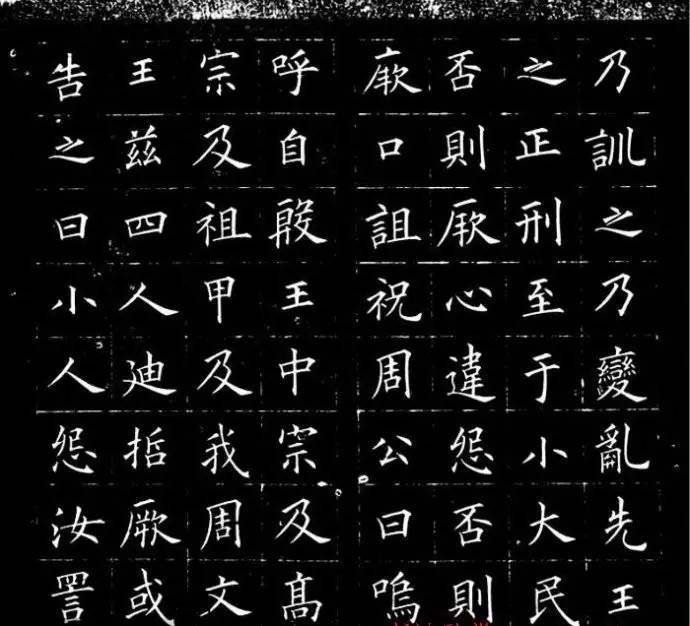 乃訓之乃變亂先王
之正刑至于小大民
否則厥心違怨否則
厥口詛祝周公曰嗚
呼自殷王中宗及髙
宗及祖甲及我周文
王茲四人迪哲厥或
告之曰小人怨汝詈